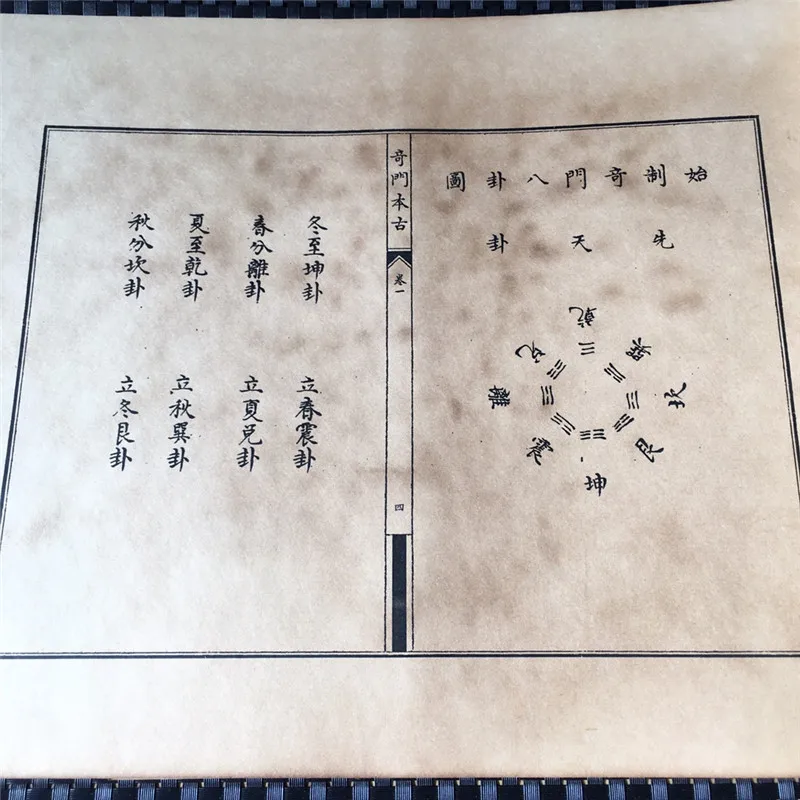 始制奇門八卦圖
先天卦
乾
兌
巽
離
坎
震
艮
坤
奇門本古
卷一
四
冬至坤卦
立春震卦
春分離卦
立夏兌卦
夏至乾卦
立秋巽卦
秋分坎卦
立冬艮卦